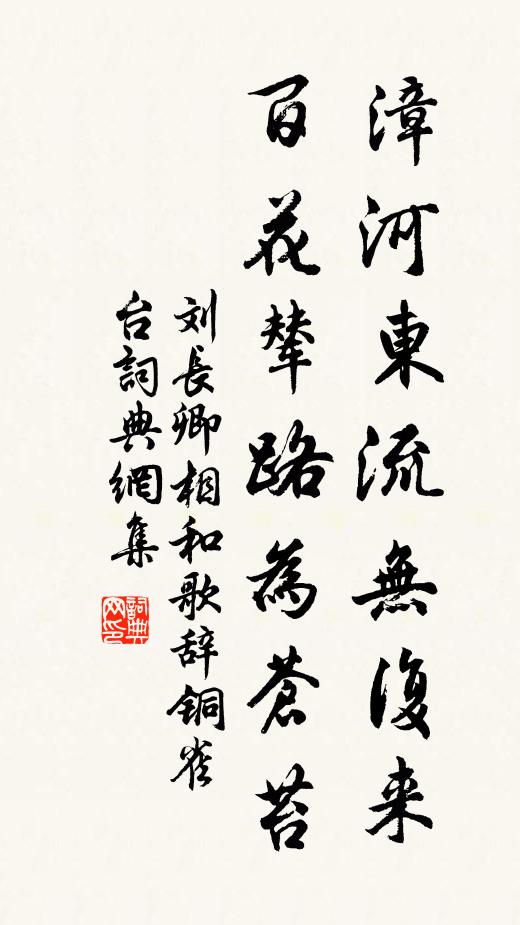 漳河東流無復来
百花輦路為蒼苔
刘長卿相和歌辞铜雀
台詞典網集
詞典网印